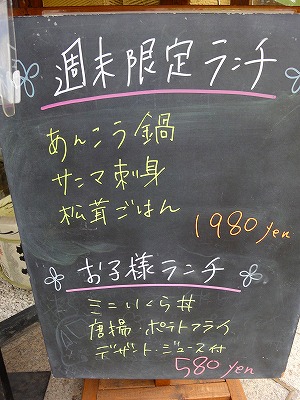 週末限定ランチ
あんこう鍋
サンマ刺身
松茸ごはん
1980yen
お子様ランチ
ミニいくら丼
唐揚・ポテトフライ
デザート・ジュース付
580yen